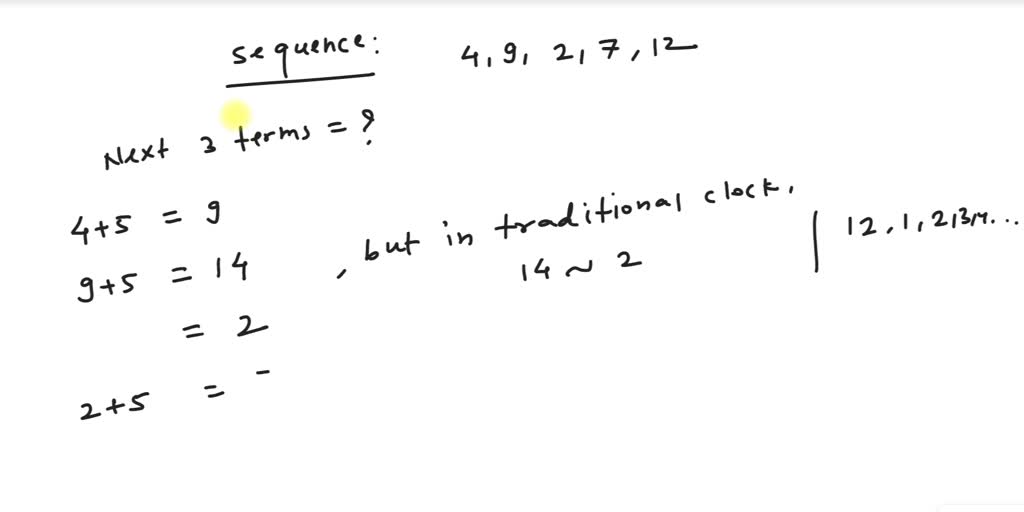 sequence: 4, 9, 2, 7, 12
Next 3 terms = ?
4+5 = 9
9+5 = 14 , but in traditional clock, | 12, 1, 2, 3, 4...
14 ~ 2
= 2
2+5 =